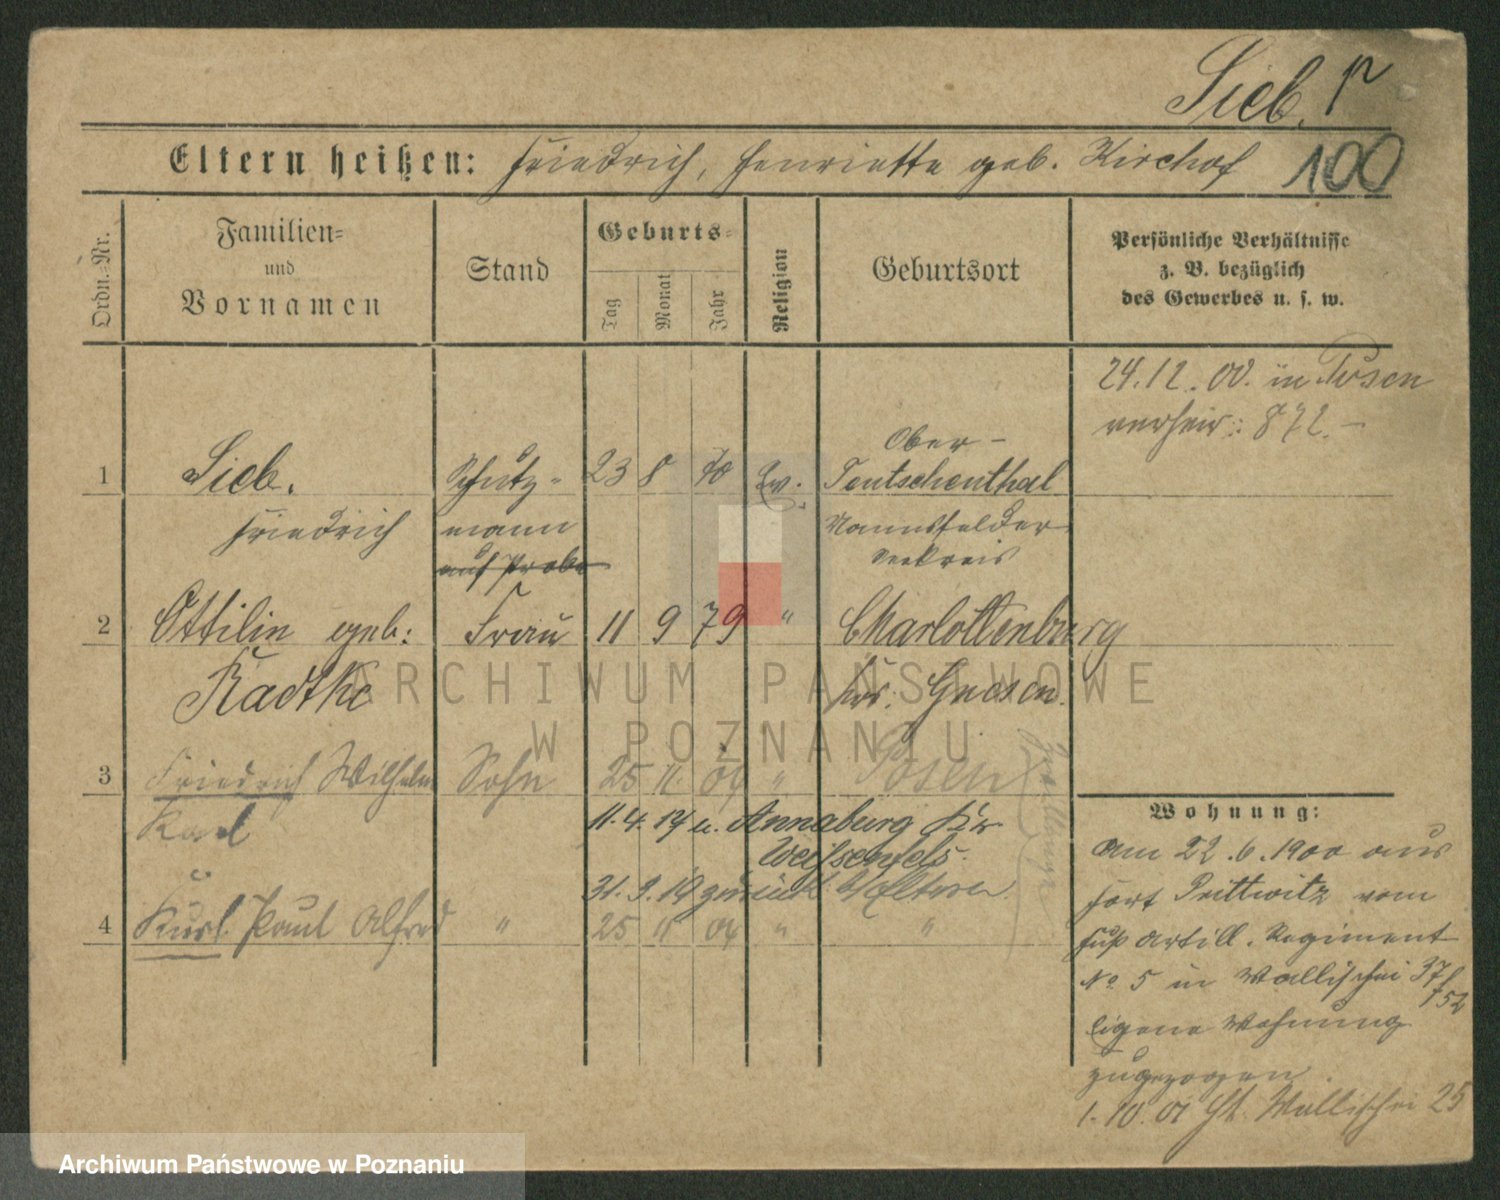 Sieb. F
Eltern heißen: Friedrich, Henriette geb. Kirchof 100
Ordn.-Nr.
Familien-
und
Vornamen
Stand
Geburts-
Tag
Monat
Jahr
Religion
Geburtsort
Persönliche Verhältnisse
z. B. bezüglich
des Gewerbes u. s. w.
24.12.00. in Posen
verheir: 872.-
1 Sieb. Schutz- 23 8 70 Ev. Ober-
Teutschenthal
Friedrich mann Mannsfelder
auf Probe Seekreis
2 Ottilie geb: Frau 11 9 79 " Charlottenburg
Radtke Krs. Gnesen.
3 Friedrich Wilhelm Sohn 25 11 04 " Posen
Karl
11.4.14 n. Annaburg Kr.
Weißenfels.
31.3.19 zurück Eltern
4 Kurt Paul Alfred " 25 11 04 " "
Zwillinge
Wohnung:
Am 22.6.1900 aus
Fort Prittwitz vom
Fuß Artill. Regiment
No 5 in Wallischei 37/
752
eigene Wohnung
zugezogen.
1.10.01 Wallischei 25
ARCHIWUM PAŃSTWOWE
W POZNANIU
Archiwum Państwowe w Poznaniu